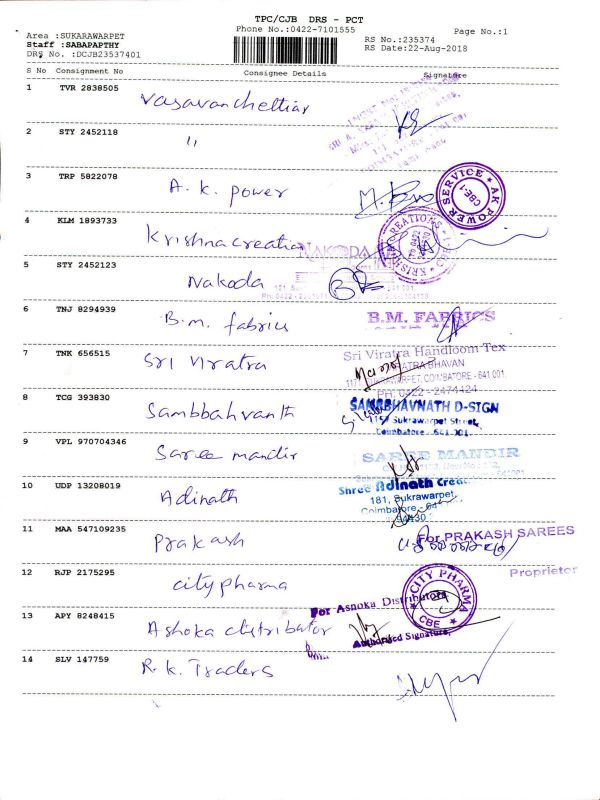 TPC/CJB DRS - PCT
Phone No.:0422-7101555
Page No.:1
Area :SUKARAWARPET
Staff :SABAPAPTHY
DRS No. :DCJB23537401
RS No.:235374
RS Date:22-Aug-2018
S No Consignment No Consignee Details Signature
1 TVR 2838505 Vasavanchettiar
2 STY 2452118 "
3 TRP 5822078 A. K. Power
AK POWER SERVICE CBE-1
4 KLM 1893733 Krishna creation
NAKODA
5 STY 2452123 Nakoda
6 TNJ 8294939 B.m. fabrics
B.M. FABRICS
7 TNK 656515 Sri Viratra
Sri Viratra Handloom Tex
SUKRAWARPET, COIMBATORE - 641 001.
PH: 0422 - 2474424
8 TCG 393830 Sambbahvanth
SAMBHAVNATH D-SIGN
Sukrawarpet Street,
Coimbatore - 641 001.
9 VPL 970704346 Saree mandir
SAREE MANDIR
10 UDP 13208019 Adinath
Shree Adinath
181, Sukrawarpet,
11 MAA 547109235 Prakash
For PRAKASH SAREES
Proprietor
12 RJP 2175295 city pharma
CITY PHARMA CBE
13 APY 8248415 Ashoka distributor
For Ashoka Distributors
Authorised Signature,
14 SLV 147759 R.K. Traders